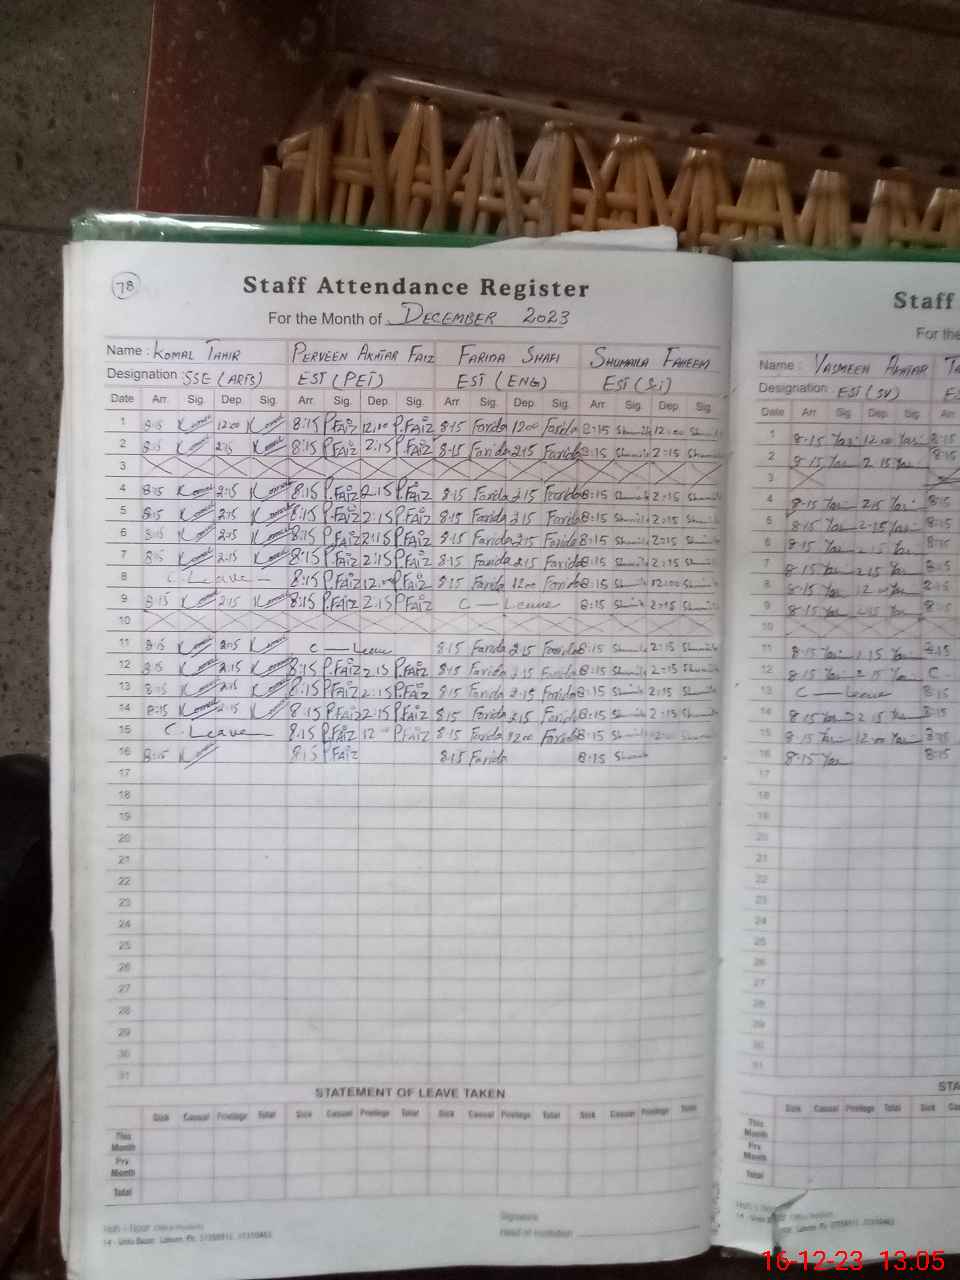 78
Staff Attendance Register
For the Month of DECEMBER 2023
Name : KOMAL TAHIR PERVEEN AKHTAR FAIZ FARIDA SHAFI SHUMAILA FAHEEM
Designation : SSE (ARTS) EST (PET) EST (ENG) EST (Sci)
Date Arr. Sig. Dep. Sig. Arr. Sig. Dep. Sig. Arr. Sig. Dep. Sig. Arr. Sig. Dep. Sig.
1 8:15 12:00 8:15 P.FAIZ 12:00 P.FAIZ 8:15 Farida 12:00 Farida 8:15 12:00
2 8:15 2:15 8:15 P.FAIZ 2:15 P.FAIZ 8:15 Farida 2:15 Farida 8:15 2:15
3
4 8:15 2:15 8:15 P.FAIZ 2:15 P.FAIZ 8:15 Farida 2:15 Farida 8:15 2:15
5 8:15 2:15 8:15 P.FAIZ 2:15 P.FAIZ 8:15 Farida 2:15 Farida 8:15 2:15
6 8:15 2:15 8:15 P.FAIZ 2:15 P.FAIZ 8:15 Farida 2:15 Farida 8:15 2:15
7 8:15 2:15 8:15 P.FAIZ 2:15 P.FAIZ 8:15 Farida 2:15 Farida 8:15 2:15
8 C. Leave 8:15 P.FAIZ 12:00 P.FAIZ 8:15 Farida 12:00 Farida 8:15 12:00
9 8:15 2:15 8:15 P.FAIZ 2:15 P.FAIZ C — Leave 8:15 2:15
10
11 8:15 2:15 C — Leave 8:15 Farida 2:15 Farida 8:15 2:15
12 8:15 2:15 8:15 P.FAIZ 2:15 P.FAIZ 8:15 Farida 2:15 Farida 8:15 2:15
13 8:15 2:15 8:15 P.FAIZ 2:15 P.FAIZ 8:15 Farida 2:15 Farida 8:15 2:15
14 8:15 2:15 8:15 P.FAIZ 2:15 P.FAIZ 8:15 Farida 2:15 Farida 8:15 2:15
15 C. Leave 8:15 P.FAIZ 12:00 P.FAIZ 8:15 Farida 12:00 Farida 8:15 12:00
16 8:15 8:15 P.FAIZ 8:15 Farida 8:15
17
18
19
20
21
22
23
24
25
26
27
28
29
30
31
STATEMENT OF LEAVE TAKEN
Sick Casual Privilege Total Sick Casual Privilege Total Sick Casual Privilege Total Sick Casual Privilege Total
This Month
Prv Month
Total
Signature
Head of Institution
14 - Urdu Bazar Lahore. Ph:
Staff
For the
Name : YASMEEN AKHTAR
Designation : EST (SV)
Date Arr. Sig. Dep. Sig. Arr.
1 8:15 12:00 8:15
2 8:15 2:15 8:15
3
4 8:15 2:15 8:15
5 8:15 2:15 8:15
6 8:15 2:15 8:15
7 8:15 2:15 8:15
8 8:15 12:00 8:15
9 8:15 2:15 8:15
10
11 8:15 2:15 8:15
12 8:15 2:15 C
13 C — Leave 8:15
14 8:15 2:15 8:15
15 8:15 12:00 8:15
16 8:15 8:15
17
18
19
20
21
22
23
24
25
26
27
28
29
30
31
STA
Sick Casual Privilege Total Sick
This Month
Prv Month
Total
16-12-23 13.05